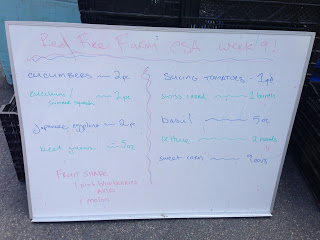 Red Fire Farm CSA week 9!
CUCUMBERS 2pc
zucchini /
summer squash 2pc
Japanese eggplant 2pc
beet greens 5oz
FRUIT SHARE
1 pint blueberries
1 melon
SLICING TOMATOES - 1qt
swiss chard 1 bunch
basil 5oz
lettuce 2 heads
sweet corn ears